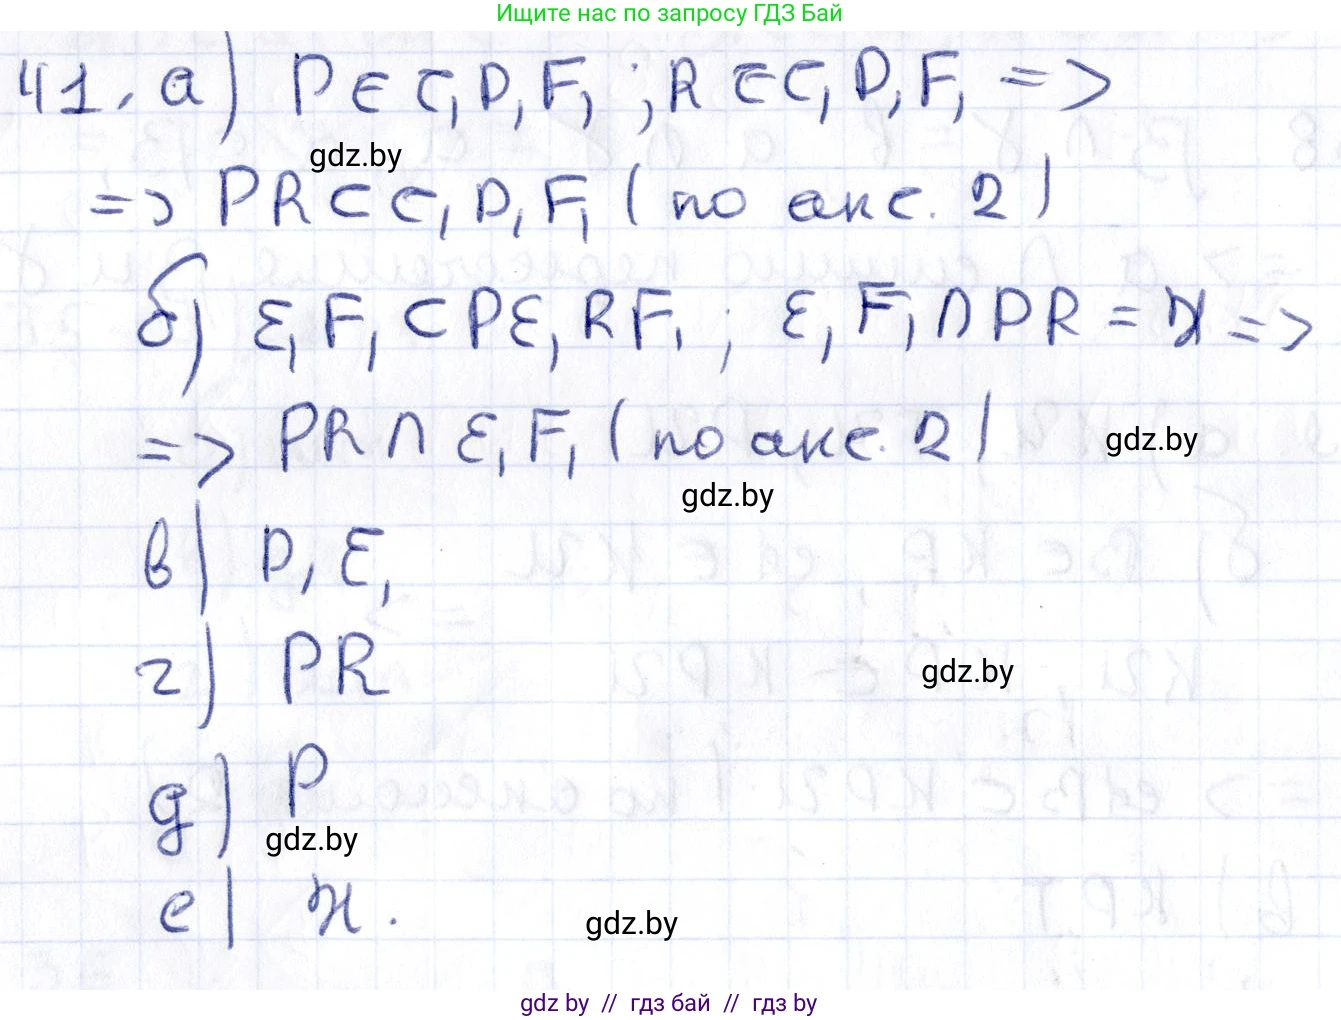 Ищите нас по запросу ГДЗ Бай
41. а) P∈C₁D₁F₁ ; R∈C₁D₁F₁ =>
gdz.by
=> PR⊂C₁D₁F₁ (по акс. 2)
б) E₁F₁⊂PE₁RF₁ ; E₁F₁∩PR = X =>
=> PR∩E₁F₁ (по акс. 2)
gdz.by
gdz.by
в) D₁E₁
г) PR
gdz.by
д) P
gdz.by
е) X.
gdz.by
gdz by // гдз бай // гдз by